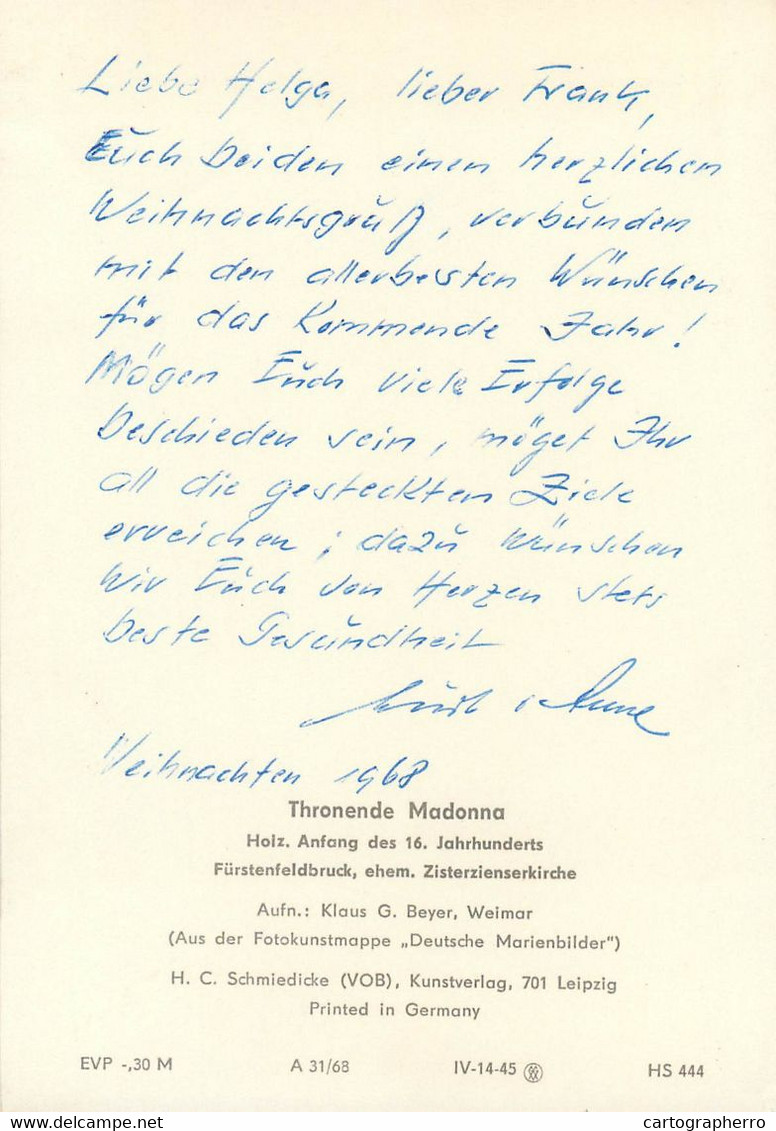 Liebe Helga, lieber Frank,
Euch beiden einen herzlichen
Weihnachtsgruß, verbunden
mit den allerbesten Wünschen
für das kommende Jahr!
Mögen Euch viele Erfolge
beschieden sein, möget Ihr
all die gesteckten Ziele
erreichen; dazu wünschen
wir Euch von Herzen stets
beste Gesundheit
Anne
Weihnachten 1968
Thronende Madonna
Holz. Anfang des 16. Jahrhunderts
Fürstenfeldbruck, ehem. Zisterzienserkirche
Aufn.: Klaus G. Beyer, Weimar
(Aus der Fotokunstmappe „Deutsche Marienbilder")
H. C. Schmiedicke (VOB), Kunstverlag, 701 Leipzig
Printed in Germany
EVP -,30 M A 31/68 IV-14-45 HS 444
www.delcampe.net cartographerro